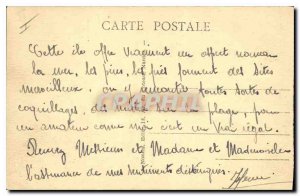 CARTE POSTALE
Cette île offre vraiment un aspect nouveau
la mer, les pins, les près forment des sites
merveilleux, on y rencontre toutes sortes de
coquillages, de sur la plage, pour
un amateur comme moi c'est un vrai régal.
Recevez Messieurs et Madame et Mademoiselle
l'assurance de mes sentiments distingués.